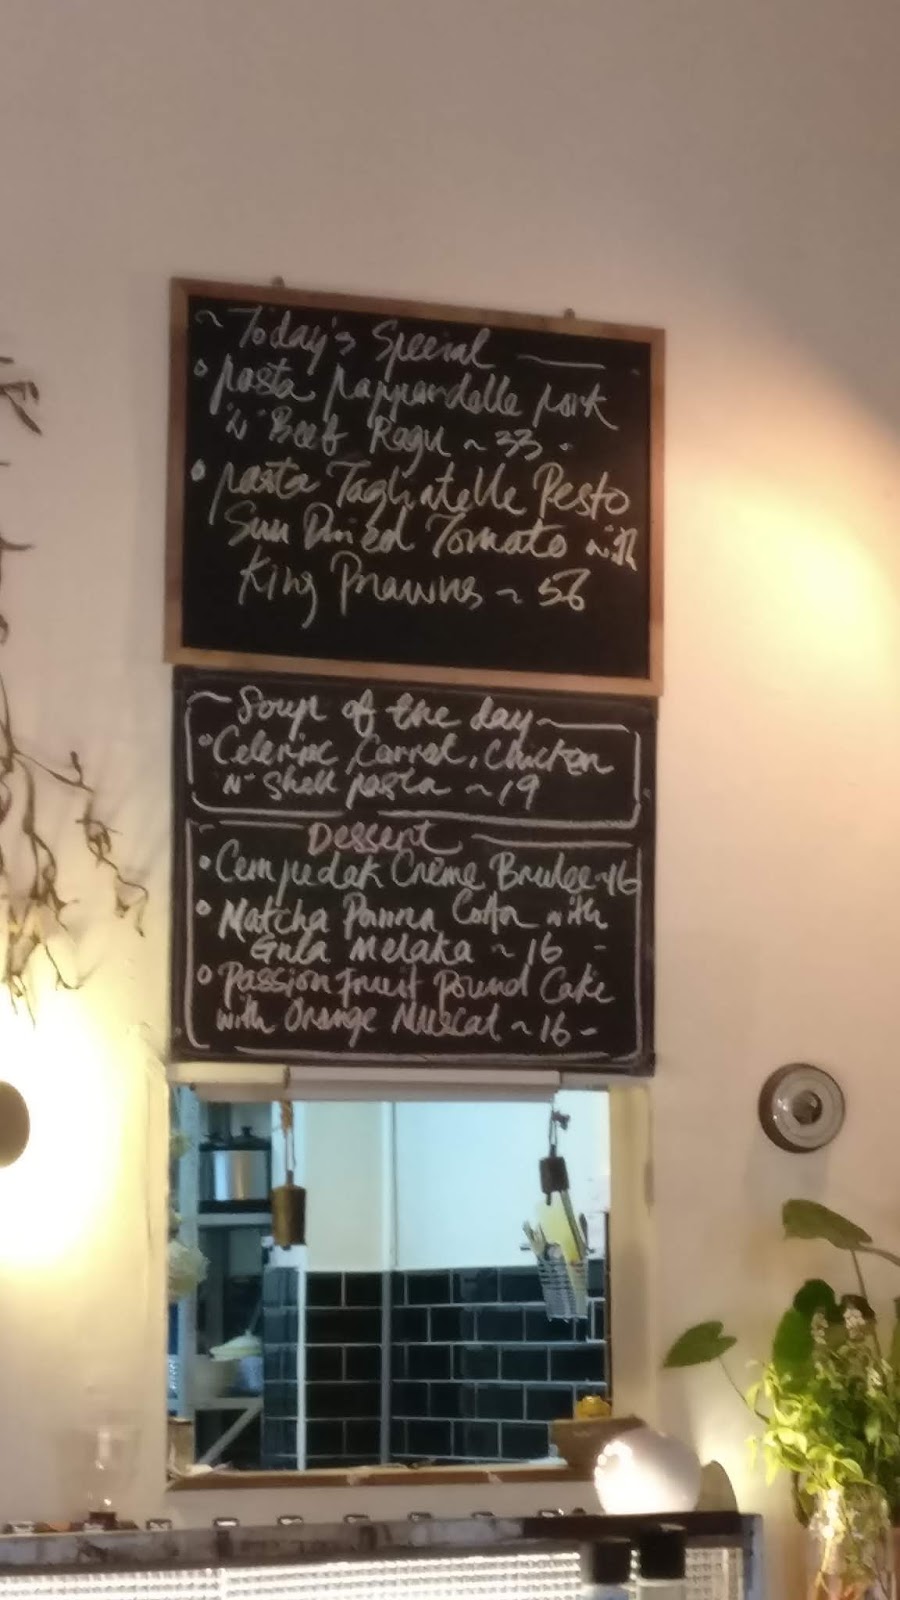 ~ Today's Special
• pasta pappardelle pork
'n' Beef Ragu ~ 33 -
• pasta Tagliatelle Pesto
Sun Dried Tomato with
King Prawns ~ 56
~ Soup of the day ~
• Celeriac, Carrot, Chicken
'N' Shell pasta ~ 19
Dessert
• Cempedak Crème Brulee ~16
• Matcha Panna Cotta with
Gula Melaka ~ 16 -
• Passion Fruit Pound Cake
with Orange Muscat ~ 16 -